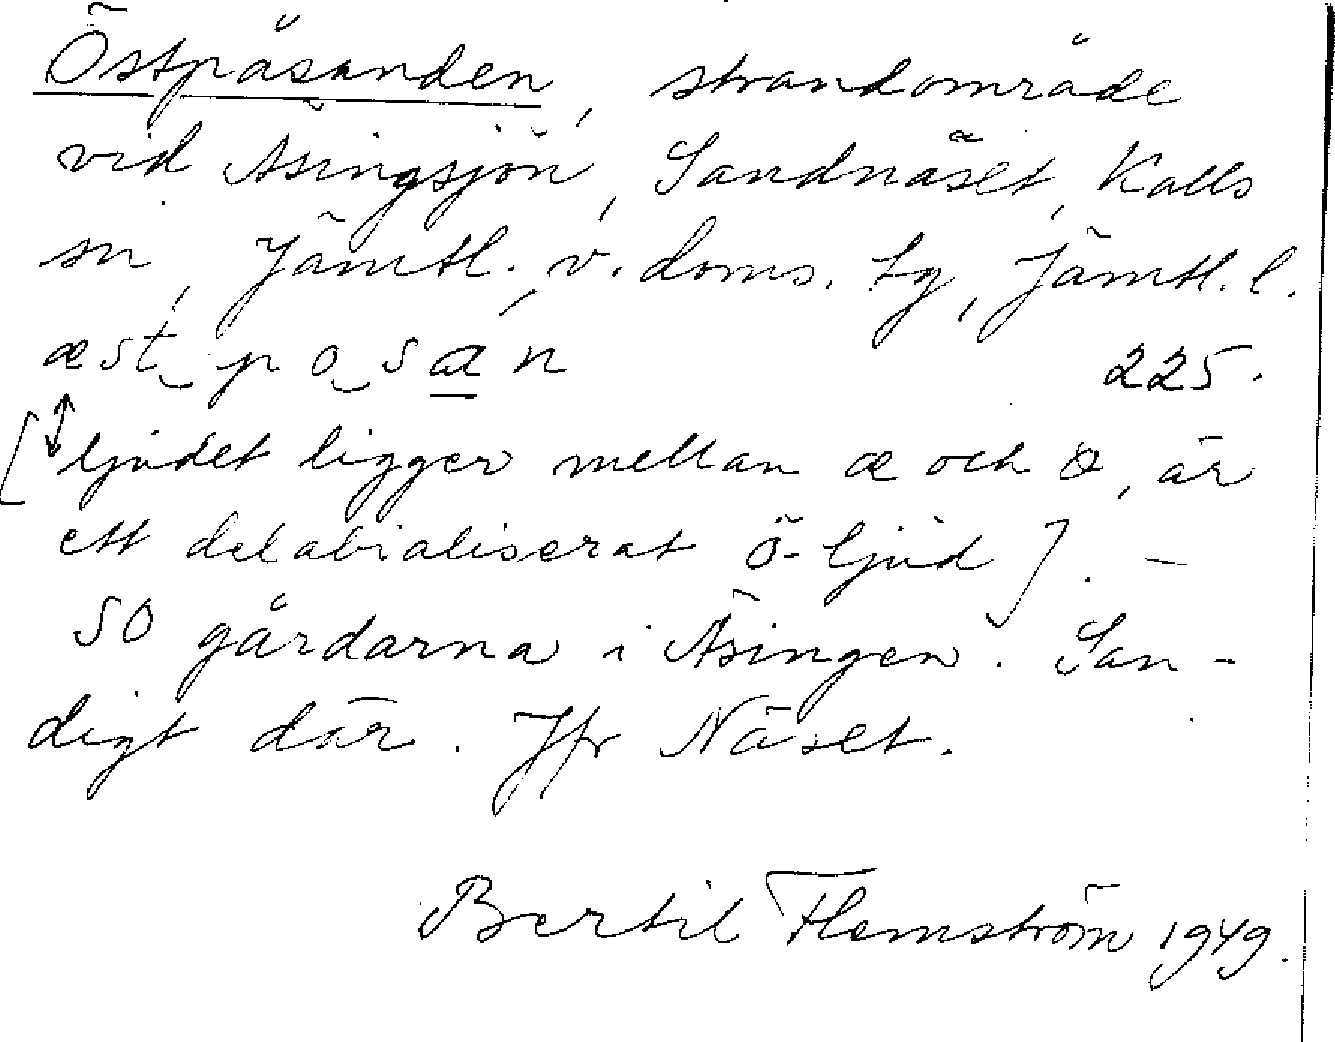 Östpåsanden, strandområde
vid Äsingsjön, Sandnäset, Kalls
sn, Jämtl. v. doms. tg, Jämtl. l.
æst p o s a n 225.
[ljudet ligger mellan æ och œ, är
ett delabialiserat ö-ljud]. –
SO gårdarna i Äsingen. San-
digt där. Jfr Näset.
Bertil Flemström 1949.